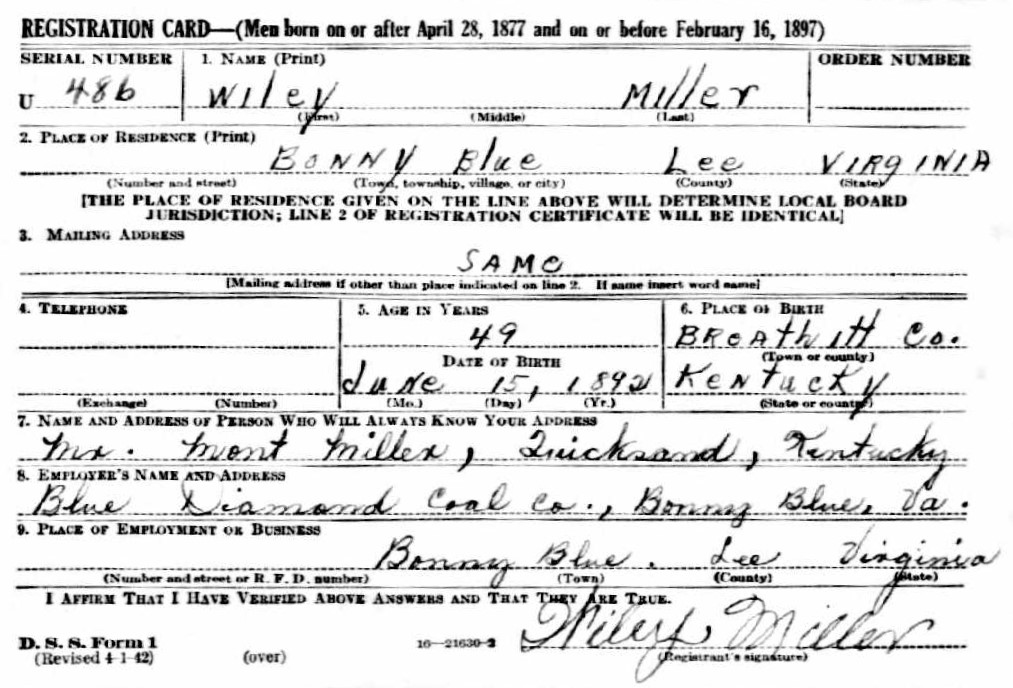 REGISTRATION CARD—(Men born on or after April 28, 1877 and on or before February 16, 1897)
SERIAL NUMBER 1. NAME (Print) ORDER NUMBER
U 486 Wiley Miller
(First) (Middle) (Last)
2. PLACE OF RESIDENCE (Print)
Bonny Blue Lee VIRGINIA
(Number and street) (Town, township, village, or city) (County) (State)
[THE PLACE OF RESIDENCE GIVEN ON THE LINE ABOVE WILL DETERMINE LOCAL BOARD
JURISDICTION; LINE 2 OF REGISTRATION CERTIFICATE WILL BE IDENTICAL]
3. MAILING ADDRESS
SAME
[Mailing address if other than place indicated on line 2. If same insert word same]
4. TELEPHONE 5. AGE IN YEARS 6. PLACE OF BIRTH
49 Breathitt Co.
DATE OF BIRTH (Town or county)
June 15, 1892 Kentucky
(Exchange) (Number) (Mo.) (Day) (Yr.) (State or country)
7. NAME AND ADDRESS OF PERSON WHO WILL ALWAYS KNOW YOUR ADDRESS
Mr. Mont Miller, Quicksand, Kentucky
8. EMPLOYER'S NAME AND ADDRESS
Blue Diamond Coal Co., Bonny Blue, Va.
9. PLACE OF EMPLOYMENT OR BUSINESS
Bonny Blue. Lee Virginia
(Number and street or R. F. D. number) (Town) (County) (State)
I AFFIRM THAT I HAVE VERIFIED ABOVE ANSWERS AND THAT THEY ARE TRUE.
D. S. S. Form 1 16—21630-2 Wiley Miller
(Revised 4-1-42) (over) (Registrant's signature)